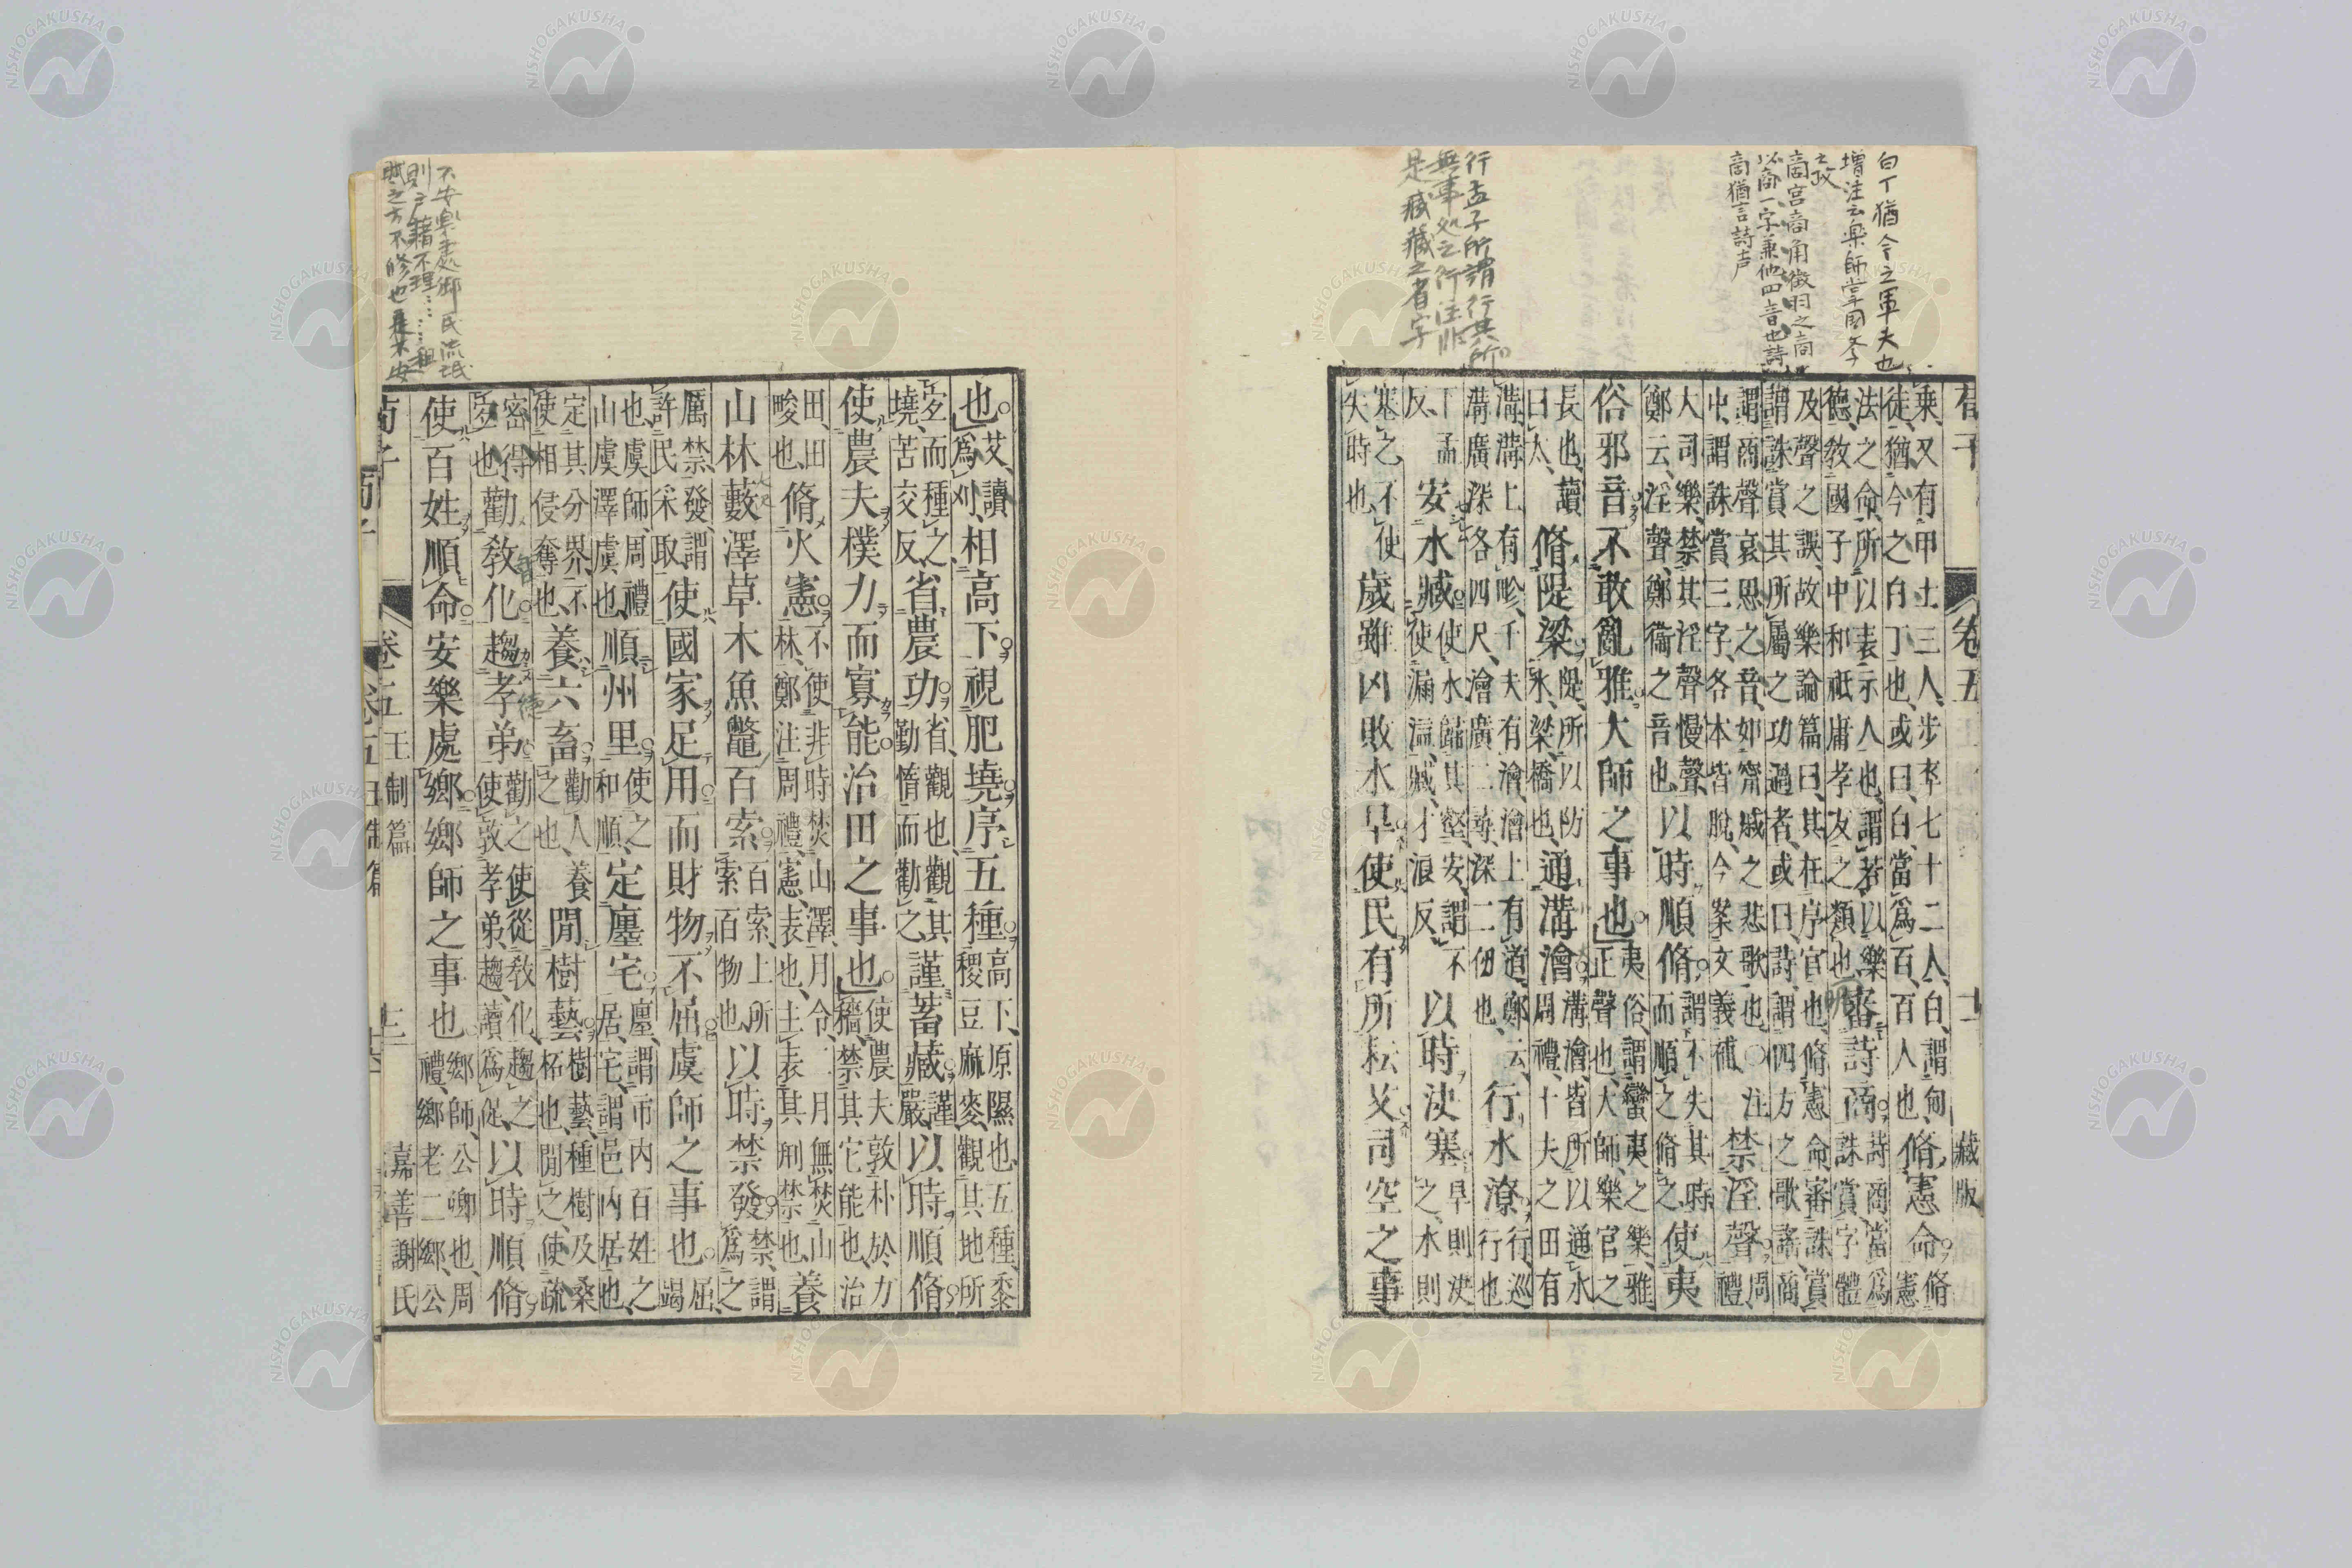 白丁猶今之軍夫也
増注云楽師掌国学
之政
商宮商角徴羽之商
以商一字兼他四音也詩
商猶言詩声
行孟子所謂行其所
無事処之行注非
是臧藏之省字
荀子 卷五 十二 藏版
乘又有甲士三人步卒七十二人白謂甸徒猶今之白丁也或曰白當爲百百人也脩憲命脩憲
法之命所以表示人也謂若以樂德教國子中和祗庸孝友之類也審詩商詩商當爲誅賞字體
及聲之誤故樂論篇曰其在序官也脩憲命審誅賞謂誅賞其所屬之功過者或曰詩謂四方之歌謠商
謂商聲哀思之音如甯戚之悲歌也〇注中謂誅賞三字各本皆脫今案文義補禁淫聲周禮
大司樂禁其淫聲慢聲鄭云淫聲鄭衞之音也以時順脩謂不失其時而順之脩之使夷
俗邪音不敢亂雅大師之事也夷俗謂蠻夷之樂雅正聲也大師樂官之
長也讀曰太脩隄梁隄所以防水梁橋也通溝澮溝澮皆所以通水周禮十夫之田有
溝溝上有畛千夫有澮澮上有道鄭云溝廣深各四尺澮廣二尋深二仞也行水潦行巡行也
下孟反安水臧使水歸其壑安謂不使漏溢臧才浪反以時決塞旱則決之水則
塞之不使失時也歲雖凶敗水旱使民有所耘艾司空之事
也艾讀爲刈相高下視肥墝序五種高下原隰也五種黍稷豆麻麥觀其地所
宜而種之墝苦交反省農功省觀也觀其勤惰而勸之謹蓄藏謹嚴以時順脩
使農夫樸力而寡能治田之事也使農夫敦朴於力穡禁其它能也治
田田畯也脩火憲不使非時焚山澤月令二月無焚山林鄭注周禮憲表也主表其刑禁也養
山林藪澤草木魚鼈百索百索上所索百物也以時禁發禁謂爲之
厲禁發謂許民采取使國家足用而財物不屈虞師之事也屈竭
也虞師周禮山虞澤虞也順州里使之和順定廛宅廛謂市內百姓之居宅謂邑內居也
定其分界不使相侵奪也養六畜勸人養之也閒樹藝樹藝種樹及桑柘也閒之使疏
密得宜也勸教化趨孝弟勸之使從教化趨之使敦孝弟趨讀爲促以時順脩
使百姓順命安樂處鄉鄉師之事也鄉師公卿也周禮鄉老二鄉公
荀子 卷五王制篇 十三 嘉善謝氏
不安楽処郷民流氓
則戸籍不理……租
賦之方不修也是不安
NISHOGAKUSHA